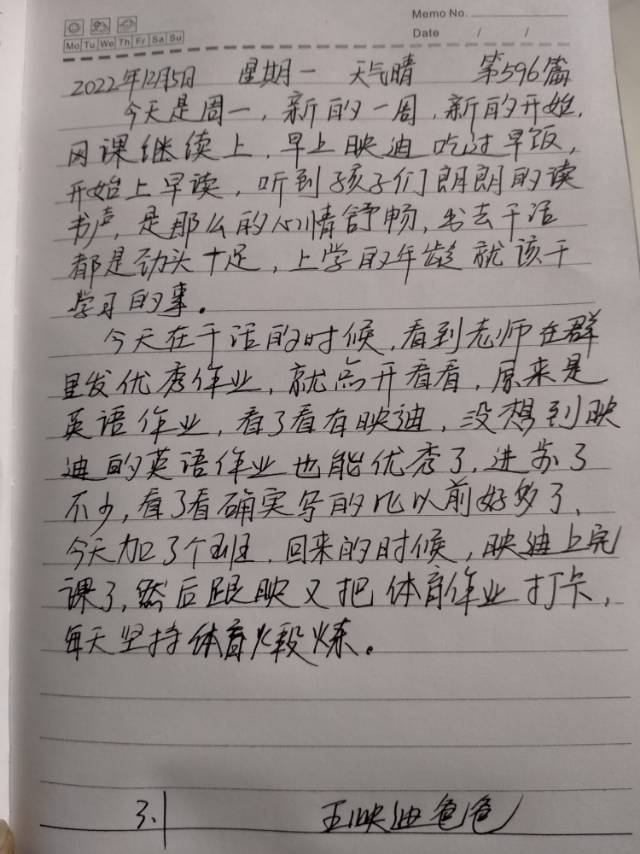 Memo No.
Mo Tu We Th Fr Sa Su
Date / /
2022年12月5日 星期一 天气晴 第596篇
今天是周一，新的一周，新的开始，
网课继续上，早上映迪吃过早饭，
开始上早读，听到孩子们朗朗的读
书声，是那么的心情舒畅，出去干活
都是劲头十足，上学的年龄就该干
学习的事。
今天在干活的时候，看到老师在群
里发优秀作业，就点开看看，原来是
英语作业，看了看有映迪，没想到映
迪的英语作业也能优秀了，进步了
不少，看了看确实写的比以前好多了，
今天加了个班，回来的时候，映迪上完
课了，然后跟映又把体育作业打卡，
每天坚持体育煅炼。
3.1 王映迪爸爸